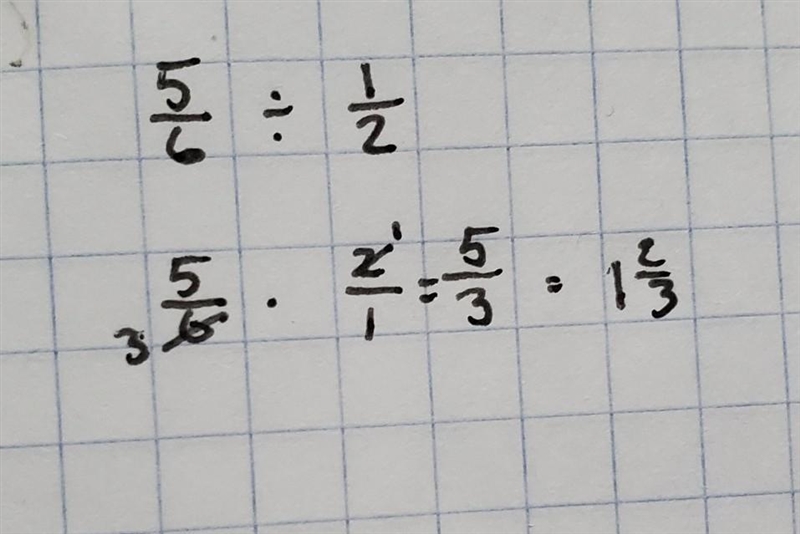 5/6 ÷ 1/2
3 5/6 · 2/1 1 = 5/3 = 1 2/3